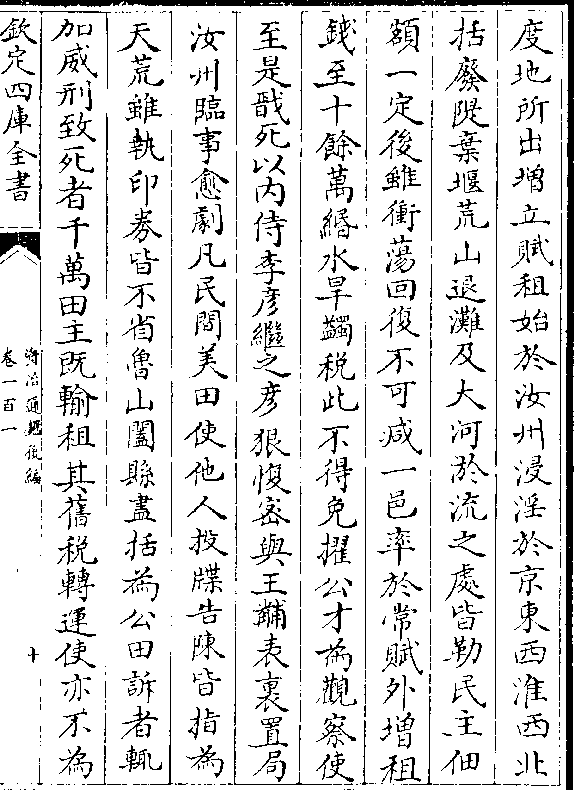 度地所出增立賦租始於汝州浸淫於京東西淮西北
括廢隄棄堰荒山退灘及大河淤流之處皆勒民主佃
額一定後雖衝蕩回復不可减一邑率於常賦外增租
錢至十餘萬緡水旱蠲税此不得免擢公才為觀察使
至是戩死以内侍李彦繼之彦狠愎宻與王黼表裏置局
汝州臨事愈劇凡民間美田使他人投牒告陳皆指為
天荒雖執印劵皆不省魯山闔縣盡括為公田訴者輒
加威刑致死者千萬田主既輸租其舊税轉運使亦不為
欽定四庫全書
資治通鑑後編
卷一百一
十